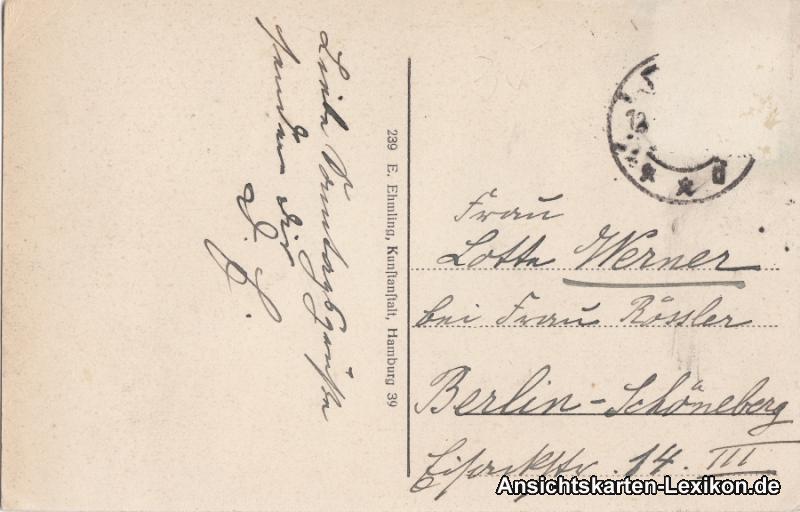 Liebe Sonntagsgrüße
senden dir
D. L.
239 E. Ehmling, Kunſtanſtalt, Hamburg 39
Frau
Lotte Werner
bei Frau Rössler
Berlin-Schöneberg
Eisackstr. 14. III
Ansichtskarten-Lexikon.de